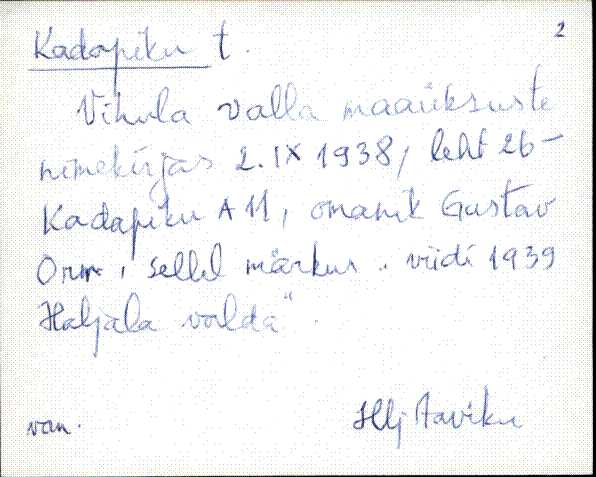 2
Kadapiku t.
Vihula valla maaüksuste
nimekirjas 2.IX 1938, leht 26-
Kadapiku A 11, omanik Gustav
Orm, sellel märkus „ viidi 1939
Haljala valda".
van. Hlj Aaviku